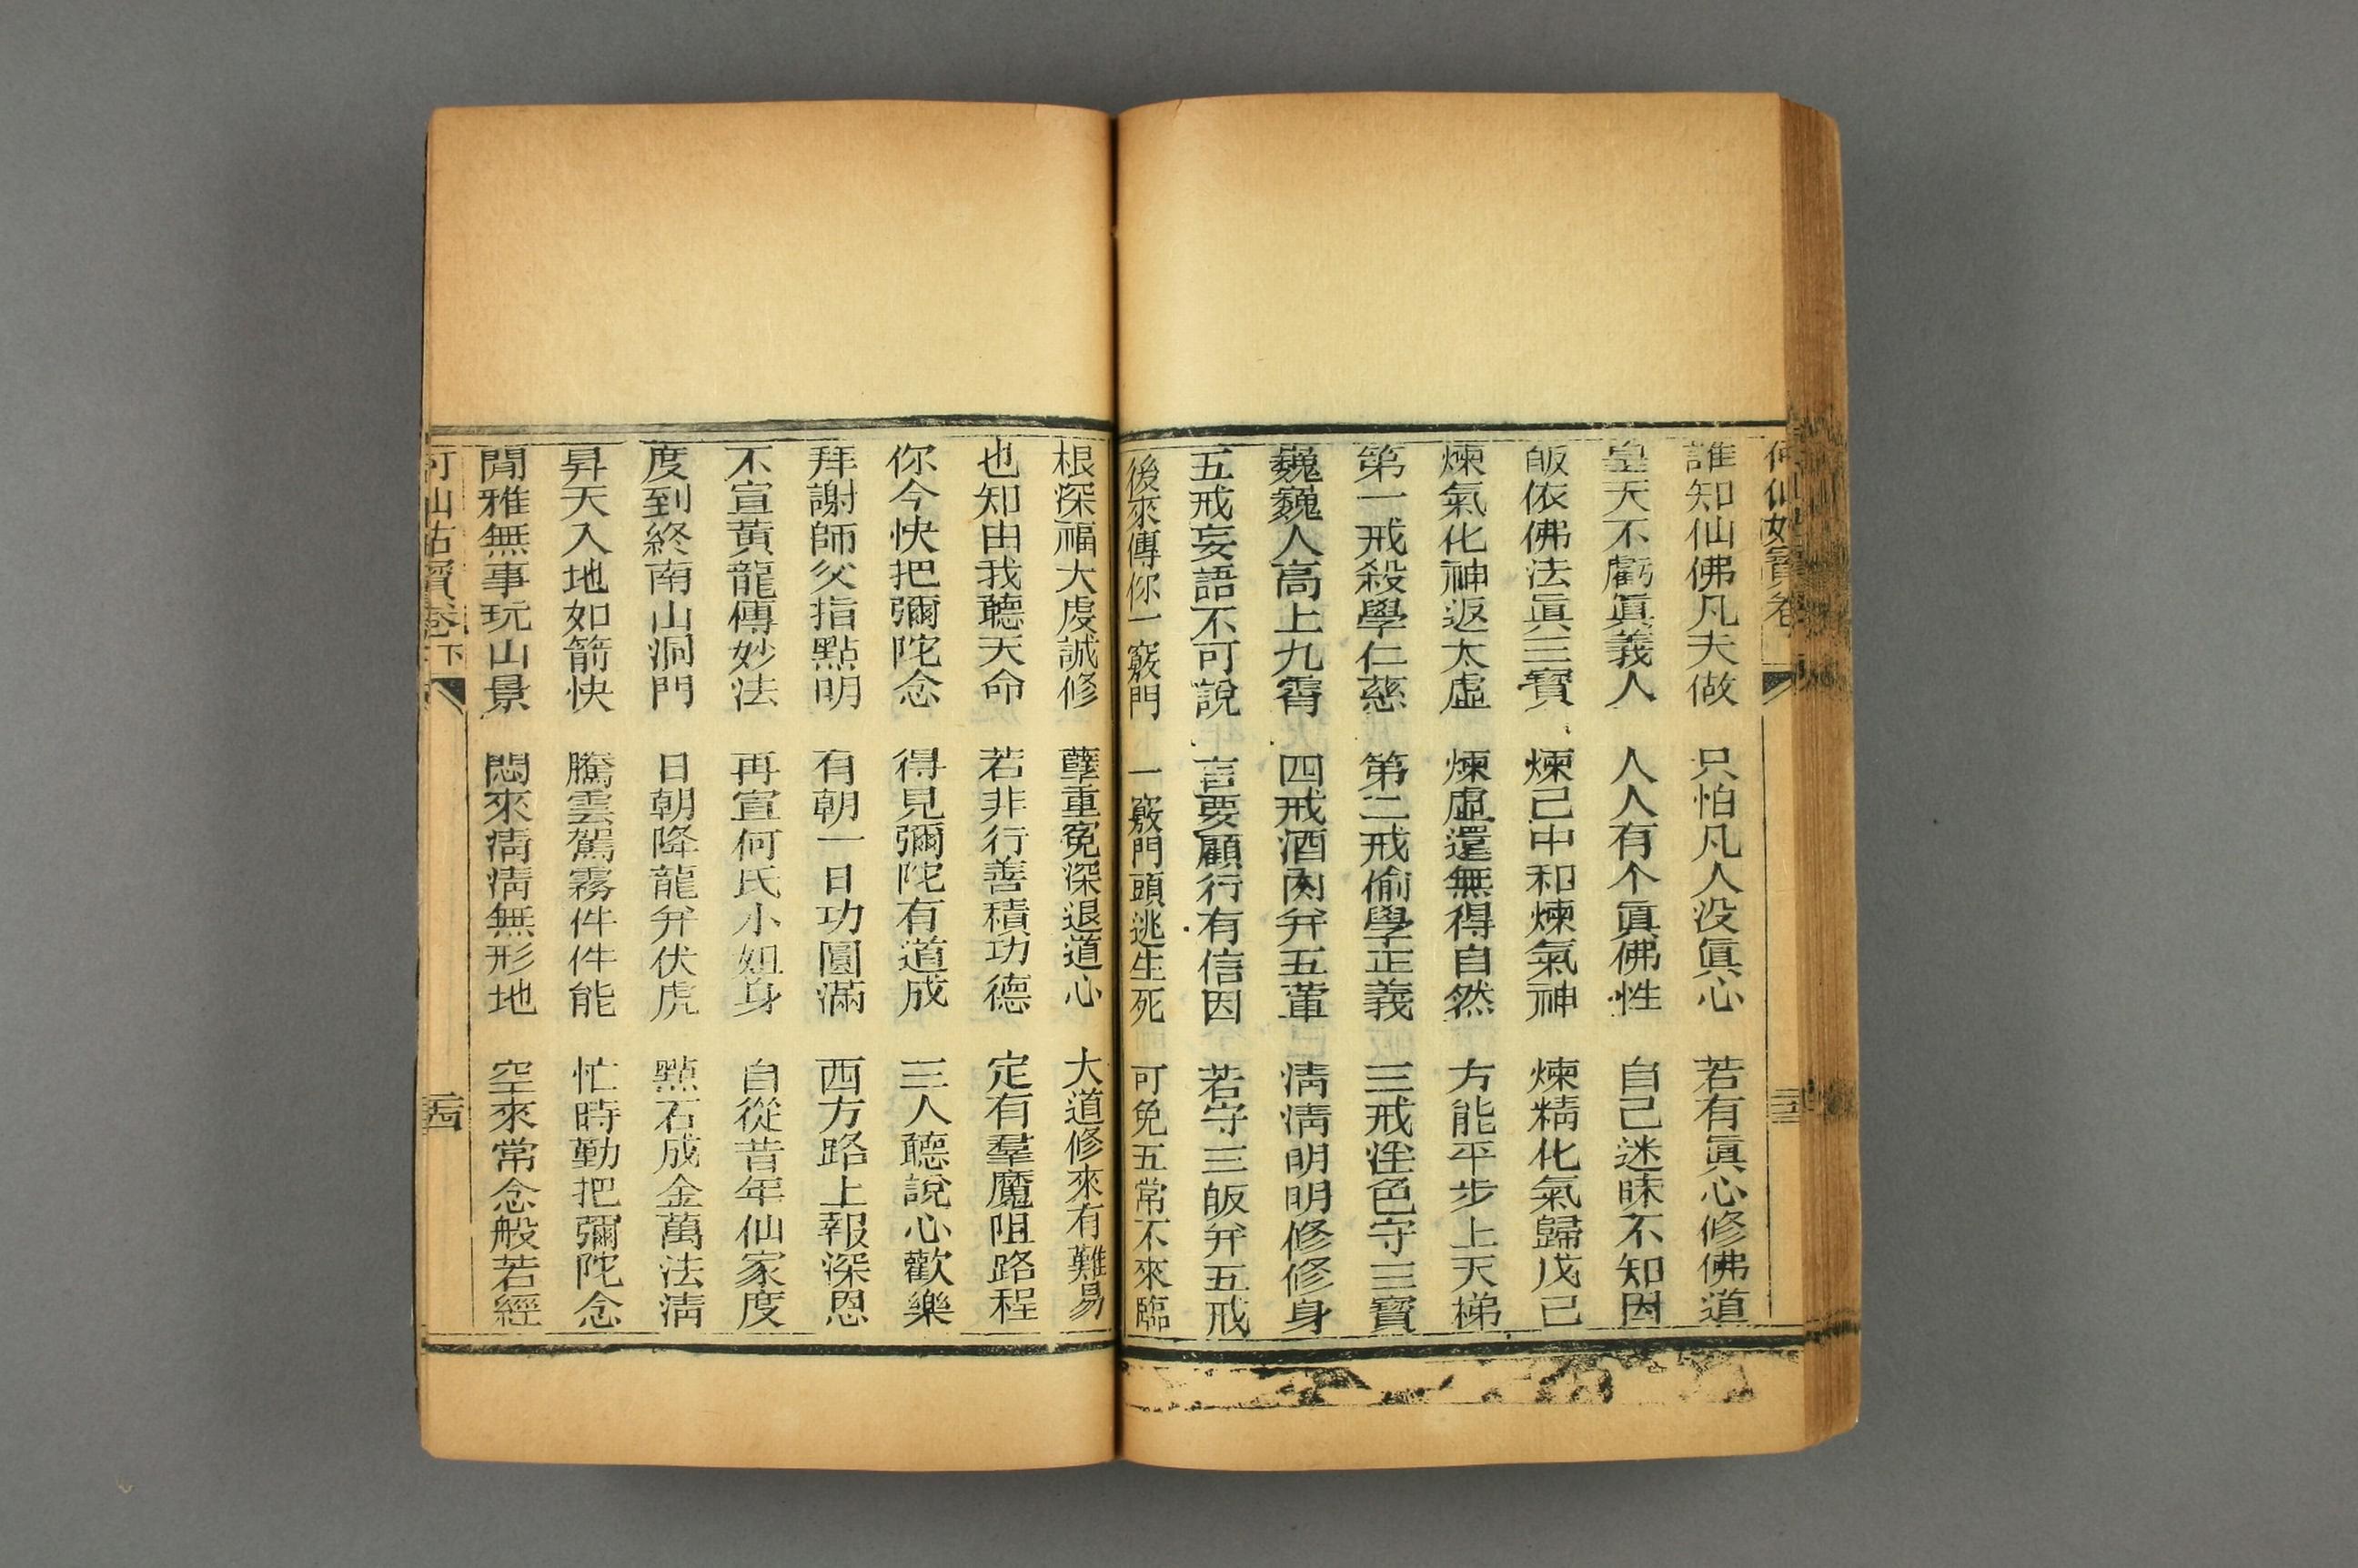 何仙姑寶卷
誰知仙佛凡夫做 只怕凡人没眞心 若有眞心修佛道
皇天不虧眞義人 人人有个眞佛性 自己迷昧不知因
皈依佛法眞三寶 煉己中和煉氣神 煉精化氣歸戊己
煉氣化神返太虛 煉虛還無得自然 方能平步上天梯
第一戒殺學仁慈 第二戒偷學正義 三戒淫色守三寶
巍巍人高上九霄 四戒酒肉弁五葷 淸淸明明修修身
五戒妄語不可說 言要顧行有信因 若守三皈弁五戒
後來傳你一竅門 一竅門頭逃生死 可免五常不來臨
根深福大虔誠修 孽重寃深退道心 大道修來有難易
也知由我聽天命 若非行善積功德 定有羣魔阻路程
你今快把彌陀念 得見彌陀有道成 三人聽說心歡樂
拜謝師父指點明 有朝一日功圓滿 西方路上報深恩
不宣黃龍傳妙法 再宣何氏小姐身 自從昔年仙家度
度到終南山洞門 日朝降龍弁伏虎 點石成金萬法淸
昇天入地如箭快 騰雲駕霧件件能 忙時勤把彌陀念
閒雅無事玩山景 悶來淸淸無形地 空來常念般若經
何仙姑寶卷 下